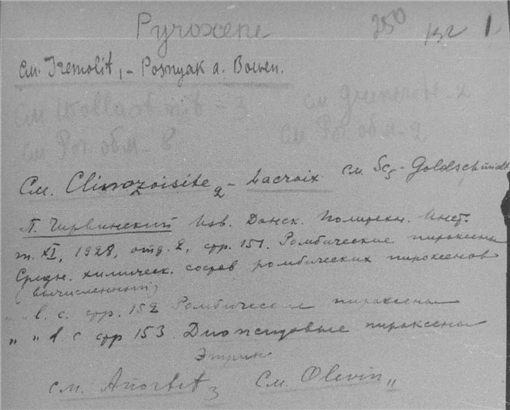 Pyroxene 250 1
См. Tremolit, - Posnyak a. Bowen.
См Wollastonit - 3 См Greenerde. 2
См Por. обм - 8 См Por. обм - 2
См. Clinozoisite 2 - Lacroix См Sc5 - Goldschmidt
П. Чирвинский Изв. Донск. Политехн. Инст.
т. XI, 1928, отд. 2, стр. 151. Ромбические пироксены
Средн. химическ. состав ромбических пироксенов
(вычисленный)
" l. c. стр. 152 Ромбические пироксены
" " l c стр 153 Диопсидовые пироксены
См. Anorthit 3 См. Olivin "